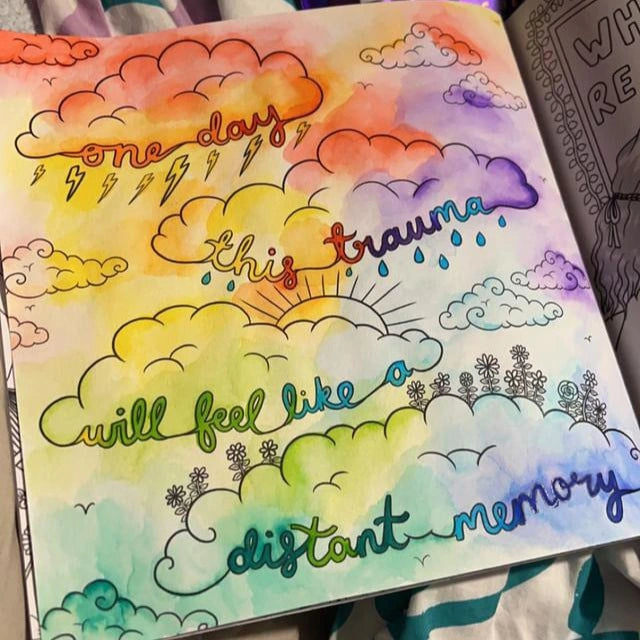 one day
this trauma
will feel like a
distant memory
WH
RE